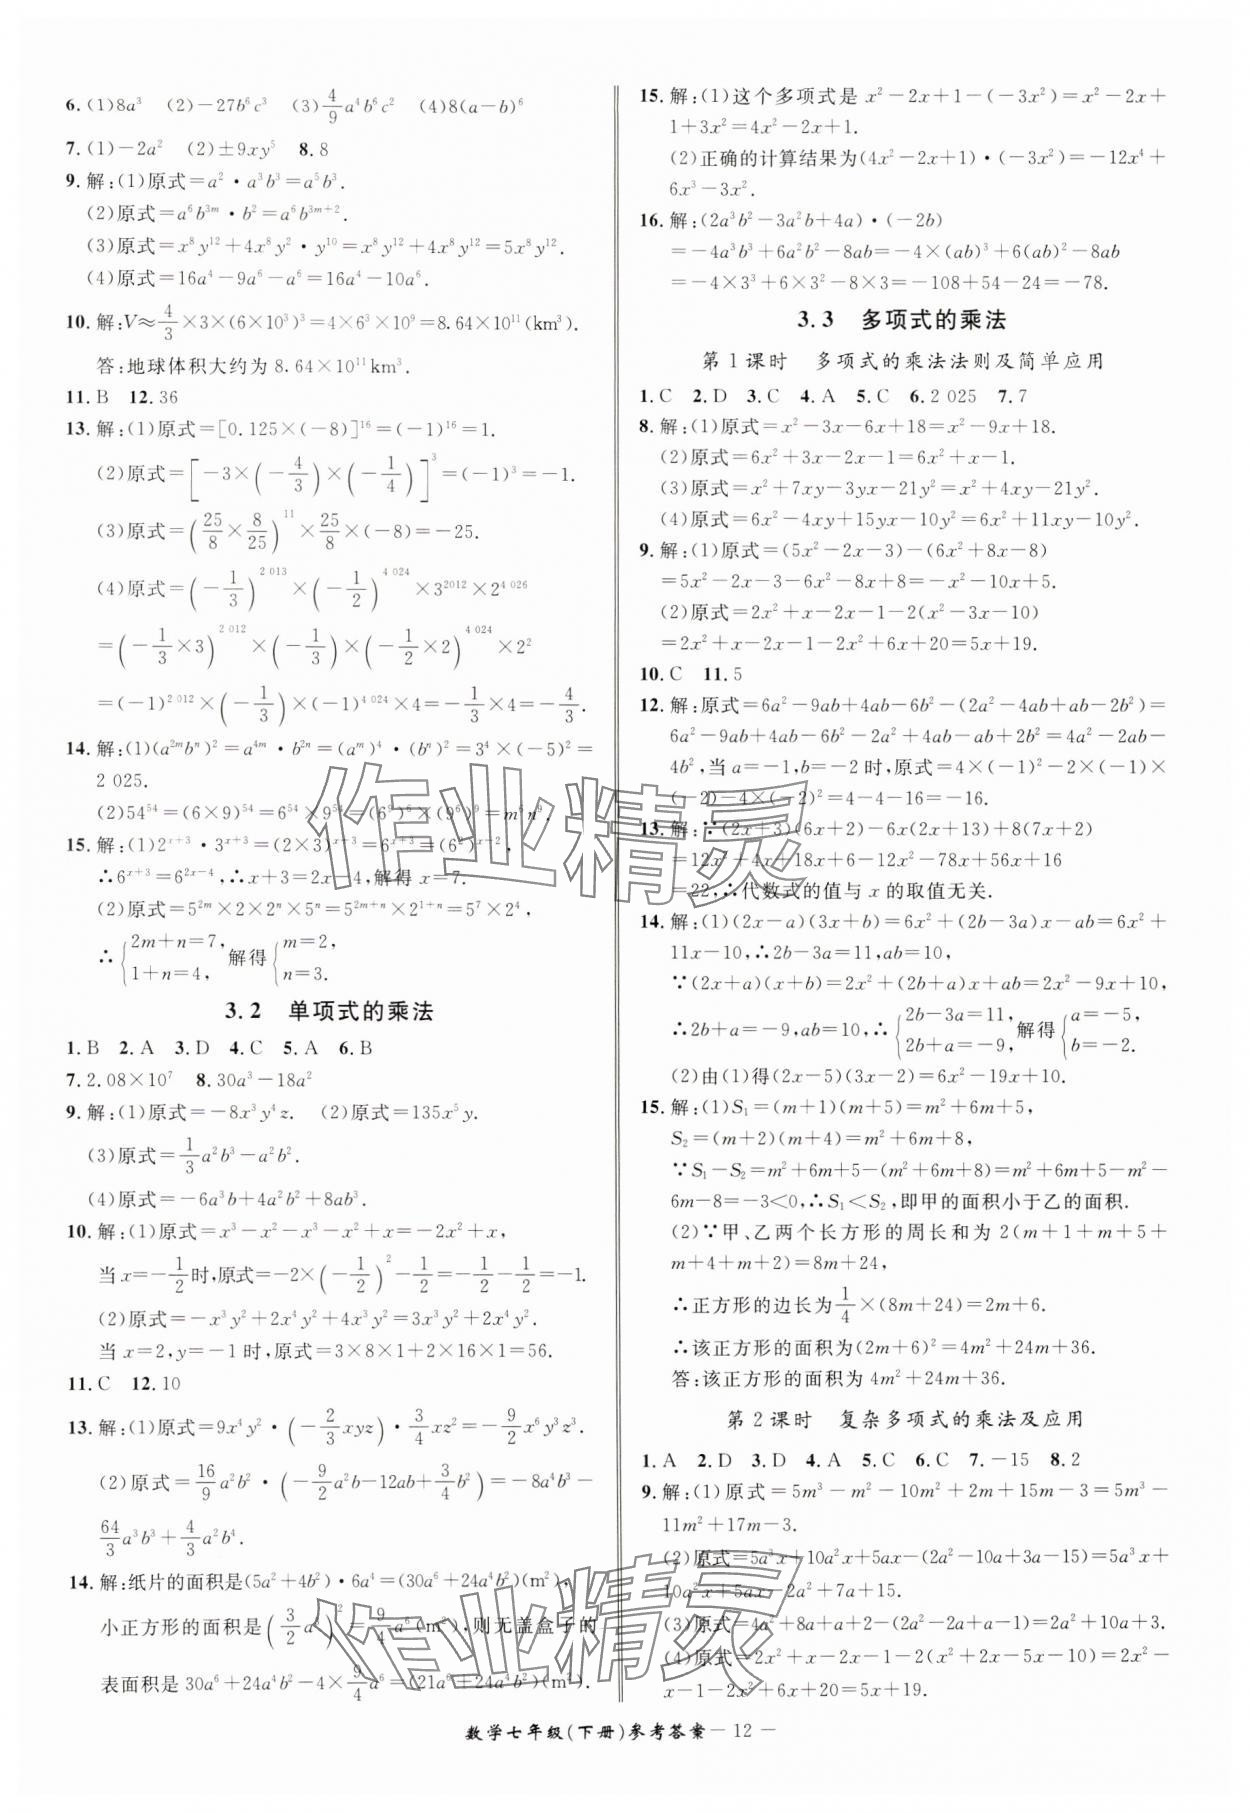 6.(1)8a³ (2)－27b⁶c³ (3)4/9a⁴b⁶c² (4)8(a－b)⁶
7.(1)－2a² (2)±9xy⁵ 8.8
9.解:(1)原式＝a²·a³b³＝a⁵b³.
(2)原式＝a⁶b³ᵐ·b²＝a⁶b³ᵐ⁺².
(3)原式＝x⁸y¹²＋4x⁸y²·y¹⁰＝x⁸y¹²＋4x⁸y¹²＝5x⁸y¹².
(4)原式＝16a⁴－9a⁶－a⁶＝16a⁴－10a⁶.
10.解:V≈4/3×3×(6×10³)³＝4×6³×10⁹＝8.64×10¹¹(km³).
答:地球体积大约为8.64×10¹¹km³.
11.B 12.36
13.解:(1)原式＝[0.125×(－8)]¹⁶＝(－1)¹⁶＝1.
(2)原式＝[－3×(－4/3)×(－1/4)]³＝(－1)³＝－1.
(3)原式＝(25/8×8/25)¹¹×25/8×(－8)＝－25.
(4)原式＝(－1/3)^2 013×(－1/2)^4 024×3^2012×2^4 026
＝(－1/3×3)^2 012×(－1/3)×(－1/2×2)^4 024×2²
＝(－1)^2 012×(－1/3)×(－1)^4 024×4＝－1/3×4＝－4/3.
14.解:(1)(a²ᵐbⁿ)²＝a⁴ᵐ·b²ⁿ＝(aᵐ)⁴·(bⁿ)²＝3⁴×(－5)²＝
2 025.
(2)54⁵⁴＝(6×9)⁵⁴＝6⁵⁴×9⁵⁴＝(6⁹)⁶×(9⁶)⁹＝m⁶n⁹.
15.解:(1)2ˣ⁺³·3ˣ⁺³＝(2×3)ˣ⁺³＝6ˣ⁺³＝(6²)ˣ⁻²,
∴6ˣ⁺³＝6²ˣ⁻⁴,∴x＋3＝2x－4,解得x＝7.
(2)原式＝5²ᵐ×2×2ⁿ×5ⁿ＝5²ᵐ⁺ⁿ×2¹⁺ⁿ＝5⁷×2⁴,
∴{2m＋n＝7, 1＋n＝4, 解得{m＝2, n＝3.
3.2 单项式的乘法
1.B 2.A 3.D 4.C 5.A 6.B
7.2.08×10⁷ 8.30a³－18a²
9.解:(1)原式＝－8x³y⁴z. (2)原式＝135x⁵y.
(3)原式＝1/3a²b³－a²b².
(4)原式＝－6a³b＋4a²b²＋8ab³.
10.解:(1)原式＝x³－x²－x³－x²＋x＝－2x²＋x,
当x＝－1/2时,原式＝－2×(－1/2)²－1/2＝－1/2－1/2＝－1.
(2)原式＝－x³y²＋2x⁴y²＋4x³y²＝3x³y²＋2x⁴y².
当x＝2,y＝－1时,原式＝3×8×1＋2×16×1＝56.
11.C 12.10
13.解:(1)原式＝9x⁴y²·(－2/3xyz)·3/4xz²＝－9/2x⁶y³z³.
(2)原式＝16/9a²b²·(－9/2a²b－12ab＋3/4b²)＝－8a⁴b³－
64/3a³b³＋4/3a²b⁴.
14.解:纸片的面积是(5a²＋4b²)·6a⁴＝(30a⁶＋24a⁴b²)(m²),
小正方形的面积是(3/2a³)²＝9/4a⁶(m²),则无盖盒子的
表面积是30a⁶＋24a⁴b²－4×9/4a⁶＝(21a⁶＋24a⁴b²)(m²).
15.解:(1)这个多项式是x²－2x＋1－(－3x²)＝x²－2x＋
1＋3x²＝4x²－2x＋1.
(2)正确的计算结果为(4x²－2x＋1)·(－3x²)＝－12x⁴＋
6x³－3x².
16.解:(2a³b²－3a²b＋4a)·(－2b)
＝－4a³b³＋6a²b²－8ab＝－4×(ab)³＋6(ab)²－8ab
＝－4×3³＋6×3²－8×3＝－108＋54－24＝－78.
3.3 多项式的乘法
第1课时 多项式的乘法法则及简单应用
1.C 2.D 3.C 4.A 5.C 6.2 025 7.7
8.解:(1)原式＝x²－3x－6x＋18＝x²－9x＋18.
(2)原式＝6x²＋3x－2x－1＝6x²＋x－1.
(3)原式＝x²＋7xy－3yx－21y²＝x²＋4xy－21y².
(4)原式＝6x²－4xy＋15yx－10y²＝6x²＋11xy－10y².
9.解:(1)原式＝(5x²－2x－3)－(6x²＋8x－8)
＝5x²－2x－3－6x²－8x＋8＝－x²－10x＋5.
(2)原式＝2x²＋x－2x－1－2(x²－3x－10)
＝2x²＋x－2x－1－2x²＋6x＋20＝5x＋19.
10.C 11.5
12.解:原式＝6a²－9ab＋4ab－6b²－(2a²－4ab＋ab－2b²)＝
6a²－9ab＋4ab－6b²－2a²＋4ab－ab＋2b²＝4a²－2ab－
4b²,当a＝－1,b＝－2时,原式＝4×(－1)²－2×(－1)×
(－2)－4×(－2)²＝4－4－16＝－16.
13.解:∵(2x＋3)(6x＋2)－6x(2x＋13)＋8(7x＋2)
＝12x²＋4x＋18x＋6－12x²－78x＋56x＋16
＝22,∴代数式的值与x的取值无关.
14.解:(1)(2x－a)(3x＋b)＝6x²＋(2b－3a)x－ab＝6x²＋
11x－10,∴2b－3a＝11,ab＝10,
∵(2x＋a)(x＋b)＝2x²＋(2b＋a)x＋ab＝2x²－9x＋10,
∴2b＋a＝－9,ab＝10,∴{2b－3a＝11, 2b＋a＝－9, 解得{a＝－5, b＝－2.
(2)由(1)得(2x－5)(3x－2)＝6x²－19x＋10.
15.解:(1)S₁＝(m＋1)(m＋5)＝m²＋6m＋5,
S₂＝(m＋2)(m＋4)＝m²＋6m＋8,
∵S₁－S₂＝m²＋6m＋5－(m²＋6m＋8)＝m²＋6m＋5－m²－
6m－8＝－3＜0,∴S₁＜S₂,即甲的面积小于乙的面积.
(2)∵甲、乙两个长方形的周长和为2(m＋1＋m＋5＋
m＋4＋m＋2)＝8m＋24,
∴正方形的边长为1/4×(8m＋24)＝2m＋6.
∴该正方形的面积为(2m＋6)²＝4m²＋24m＋36.
答:该正方形的面积为4m²＋24m＋36.
第2课时 复杂多项式的乘法及应用
1.A 2.D 3.D 4.A 5.C 6.C 7.－15 8.2
9.解:(1)原式＝5m³－m²－10m²＋2m＋15m－3＝5m³－
11m²＋17m－3.
(2)原式＝5a³x＋10a²x＋5ax－(2a²－10a＋3a－15)＝5a³x＋
10a²x＋5ax－2a²＋7a＋15.
(3)原式＝4a²＋8a＋2a－(2a²－2a＋a－1)＝2a²＋10a＋3.
(4)原式＝2x²＋x－2x－1－2(x²＋2x－5x－10)＝2x²－
x－1－2x²＋6x＋20＝5x＋19.
数学七年级(下册)参考答案－12－
作业精灵
作业精灵